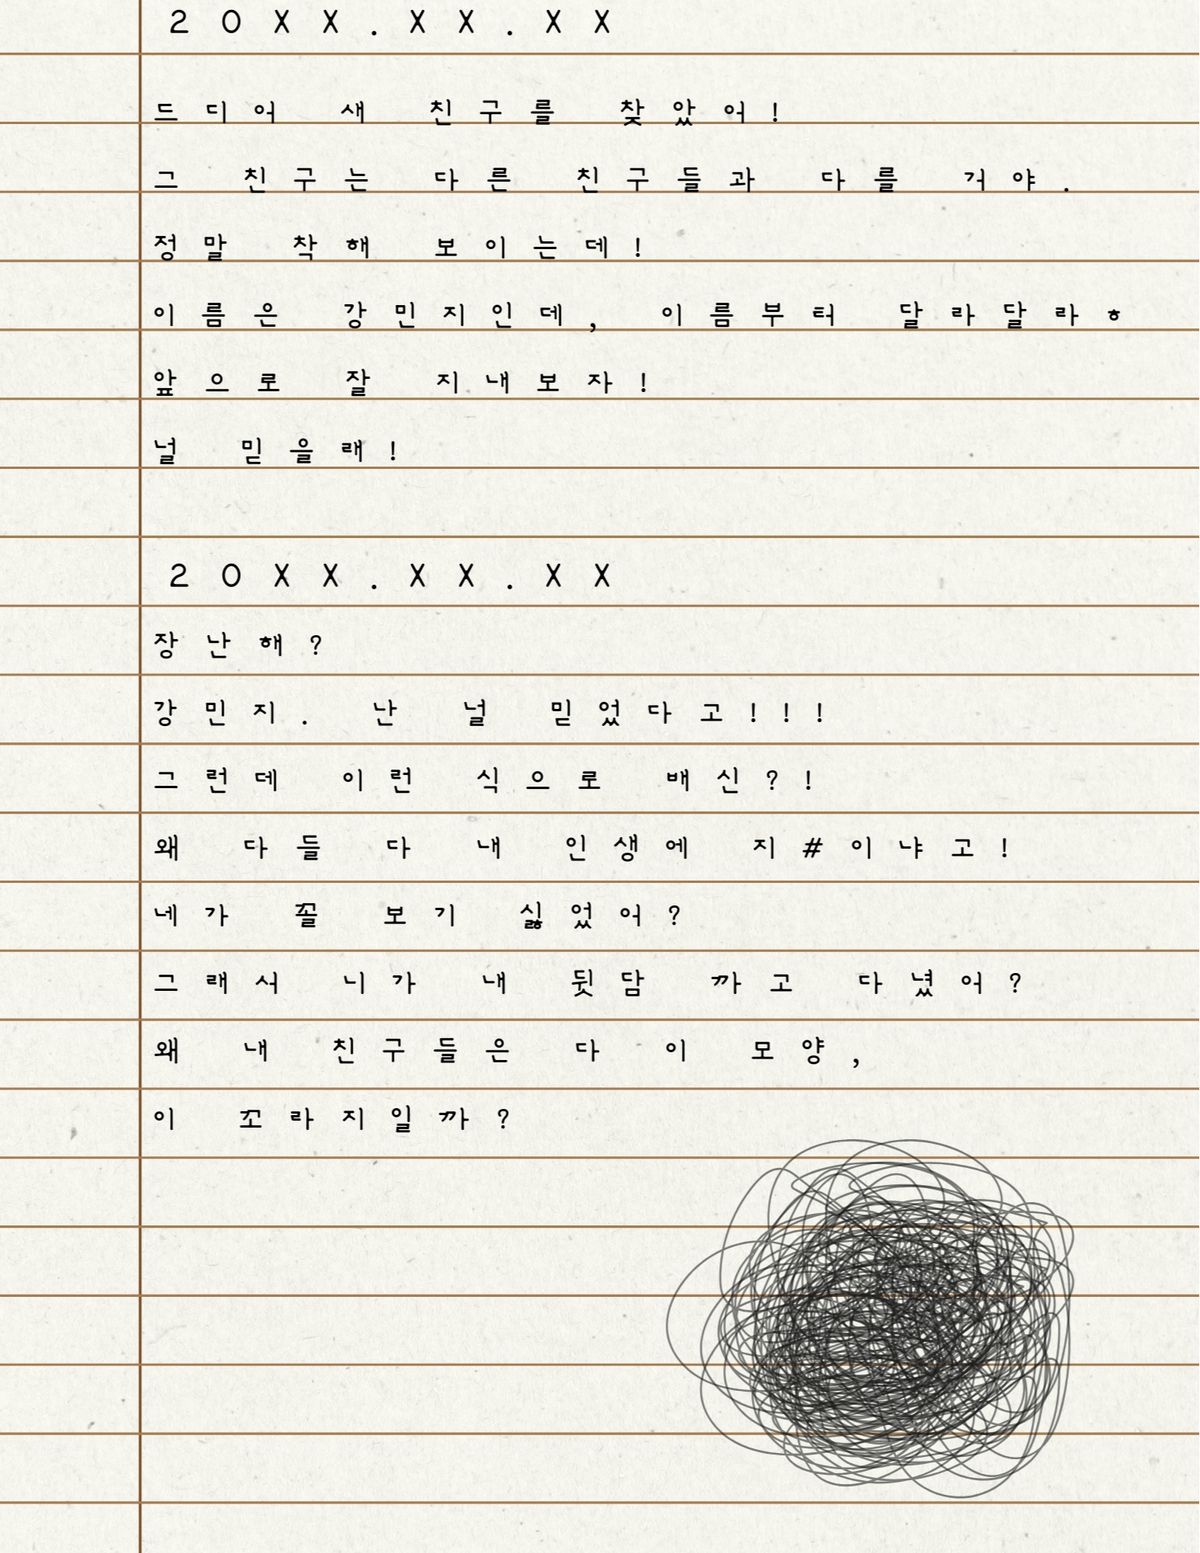 20XX.XX.XX
드디어 새 친구를 찾았어!
그 친구는 다른 친구들과 다를 거야.
정말 착해 보이는데!
이름은 강민지인데, 이름부터 달라달라ㅎ
앞으로 잘 지내보자!
널 믿을래!
20XX.XX.XX
장난해?
강민지. 난 널 믿었다고!!!
그런데 이런 식으로 배신?!
왜 다들 다 내 인생에 지#이냐고!
네가 꼴 보기 싫었어?
그래서 니가 내 뒷담 까고 다녔어?
왜 내 친구들은 다 이 모양,
이 꼬라지일까?